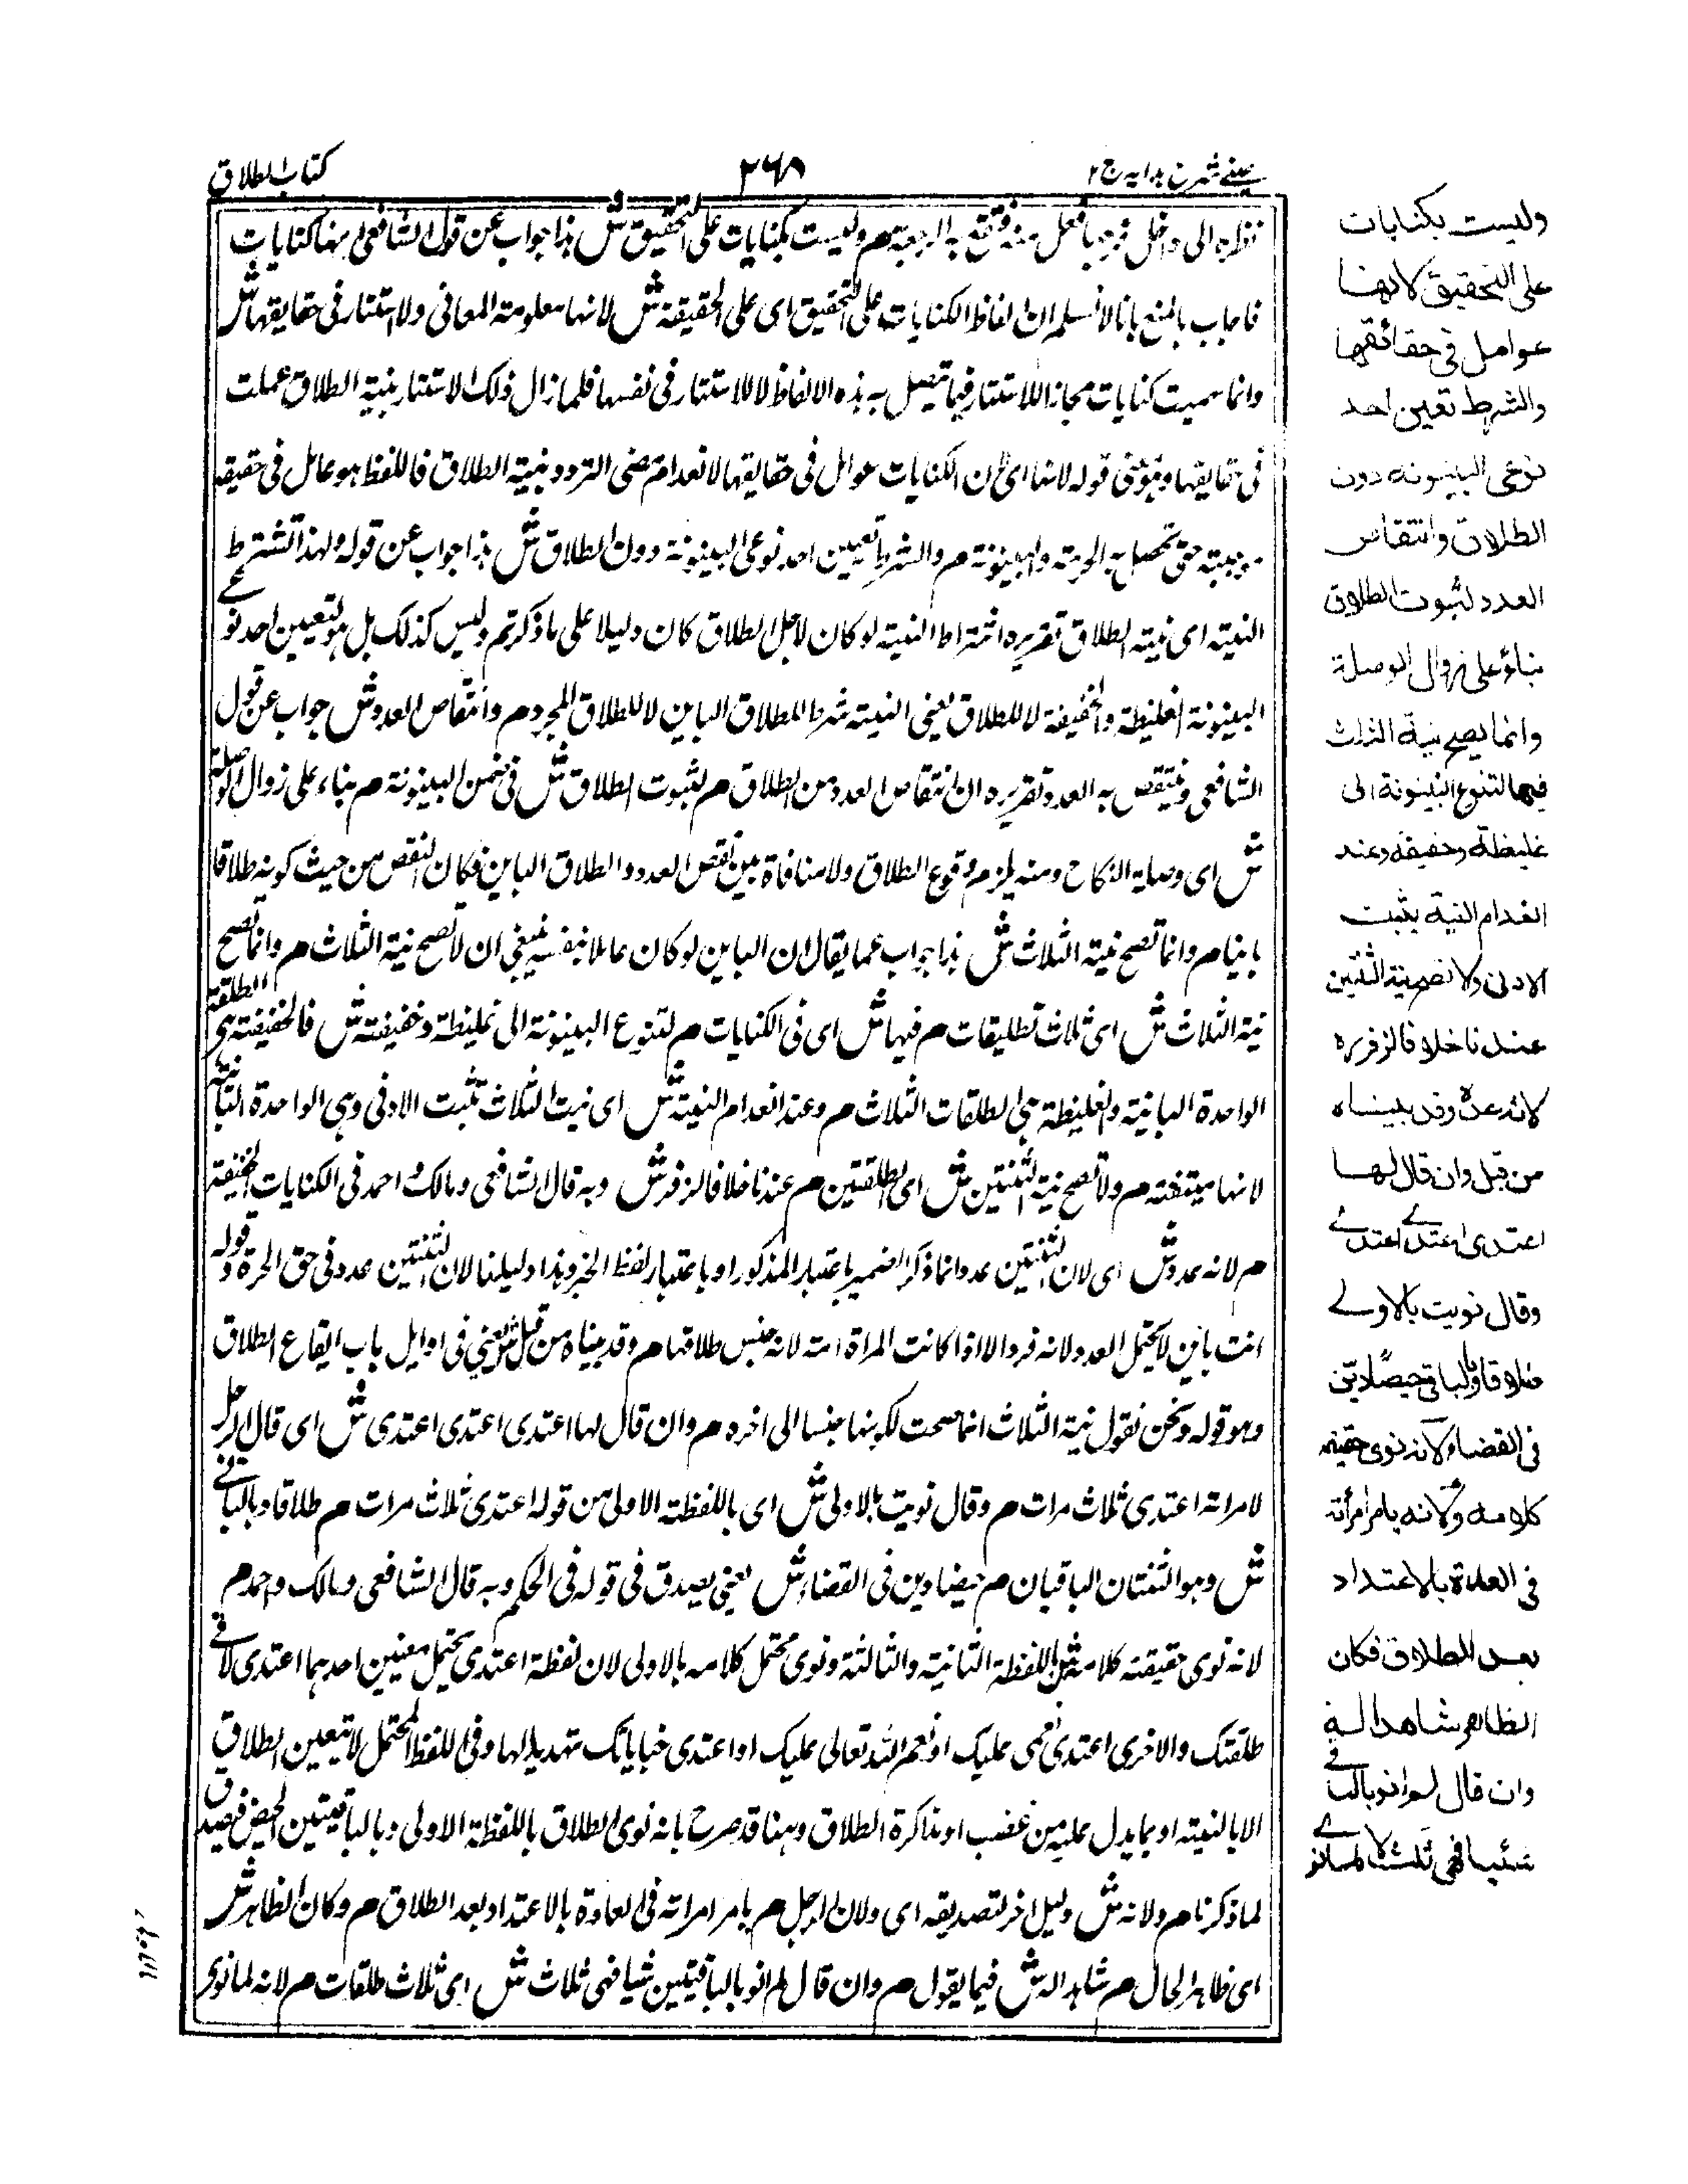 عینے شرح ہدایہ ج ٢
٢٦٨
کتاب الطلاق
نظره الى داخل فرجها فعل منه فتقع به الرجعة م وليست بكنايات على التحقيق ش هذا جواب عن قول الشافعى انها كنايات
فاجاب بالمنع بانا لانسلم ان الفاظ الكنايات على التحقيق اى على الحقيقة ش لانها معلومة المعانى ولا استتار فى حقايقها ش
وانما سميت كنايات مجازا للاستتار فيما تتصل به هذه الالفاظ لا للاستتار فى نفسها فلما زال ذلك الاستتار بنية الطلاق عملت
فى حقايقها وهو معنى قوله لانها اى لان الكنايات عوامل فى حقايقها لانعدام معنى التردد بنية الطلاق فاللفظ هو عامل فى حقيقة
موجبته حتى تحصل به الحرمة والبينونة م والشرط تعيين احد نوعى البينونة دون الطلاق ش هذا جواب عن قوله ولهذا تشترط
النية اى نية الطلاق تقريره اشتراط النية لو كان لاجل الطلاق كان دليلا على ما ذكرتم وليس كذلك بل هو لتعيين احد نوعى
البينونة الغليظة والخفيفة لا للطلاق يعنى النية شرط للطلاق الباين لا للطلاق المجرد م وانتقاص العدد ش جواب عن قول
الشافعى وينتقص به العدد وتقريره ان انتقاص العدد من الطلاق م لثبوت الطلاق ش فى ضمن البينونة م بناء على زوال الوصلة
ش اى وصلة النكاح ومنه يلزم وقوع الطلاق ولا منافاة بين نقص العدد والطلاق الباين فكان النقص من حيث كونه طلاقا
باينا م وانما تصح نية الثلاث ش هذا جواب عما يقال ان الباين لو كان عاملا بنفسه ينبغى ان لا تصح نية الثلاث م وانما تصح
نية الثلاث ش اى ثلاث تطليقات م فيها ش اى فى الكنايات م لتنوع البينونة الى غليظة وخفيفة ش فالخفيفة هى الطلقة
الواحدة البانية والغليظة هى الطلقات الثلاث م وعند انعدام النية ش اى نيت الثلاث تثبت الادنى وهى الواحدة البائنة
لانها متيقنة م ولا تصح نية الثنتين ش اى الطلقتين م عندنا خلافا لزفر ش وبه قال الشافعى ومالك واحمد فى الكنايات الخفيفة
م لانه عدد ش اى لان الثنتين عدد وانما ذكر الضمير باعتبار المذكور او باعتبار لفظ الخبر وهذا دليلنا لان الثنتين عدد فى حق الحرة وقوله
انت باين لا يحتمل العدد ولانه فرد الا اذا كانت المراة امة لانه جنس طلاقها م وقد بيناه من قبل ش يعنى فى اوايل باب ايقاع الطلاق
وهو قوله ونحن نقول نية الثلاث انما صحت لكونها جنسا الى اخره م وان قال لها اعتدى اعتدى اعتدى ش اى قال الرجل
لامراته اعتدى ثلاث مرات م وقال نويت بالاولى ش اى باللفظة الاولى من قوله اعتدى ثلاث مرات م طلاقا وبالباقى
ش وهو الثنتان الباقيان م حيضا دين فى القضاء ش يعنى يصدق فى قوله فى الحكم وبه قال الشافعى ومالك واحمد م
لانه نوى حقيقة كلامه ش باللفظة الثانية والثالثة ونوى محتمل كلامه بالاولى لان لفظة اعتدى يحتمل معنيين احدهما اعتدى لانى
طلقتك والاخرى اعتدى نعمى عليك او نعم الله تعالى عليك او اعتدى خباياتك تهديد لها وفى اللفظ المحتمل لا يتعين الطلاق
الا بالنية او بما يدل عليه من غضب او مذاكرة الطلاق وههنا قد صرح بانه نوى الطلاق باللفظة الاولى وبالباقيتين الحيض فيصدق
لما ذكرنا م ولانه ش دليل اخر لتصديقه اى ولان الرجل م يامر امراته فى العادة بالاعتداد بعد الطلاق م وكان الظاهر ش
اى ظاهر الحال م شاهدا له ش فيما يقول م وان قال لم انو بالباقيتين شيا فهى ثلاث ش اى ثلاث طلقات م لانه لما نوى
وليست بكنايات
على التحقيق لانها
عوامل فى حقائقها
والشرط تعين احد
نوعى البينونة دون
الطلاق وانتقاص
العدد لثبوت الطلاق
بناء على زوال الوصلة
وانما يصح نية الثلث
فيها لتنوع البينونة الى
غليظة وخفيفة وعند
انعدام النية يثبت
الادنى ولا تصح نية الثنتين
عندنا خلافا لزفر رہ
لانه عدد وقد بيناه
من قبل وان قال لها
اعتدى اعتدے اعتدے
وقال نويت بالاولے
طلاقا وبالباقى حيضا دين
فى القضاء لانه نوى حقيقة
كلامه ولانه يامر امرأته
فى العادة بالاعتداد
بعد الطلاق فكان
الظاهر شاهدا له
وان قال لم انو بالباقے
شيئا فهى ثلث لانه لما نوے